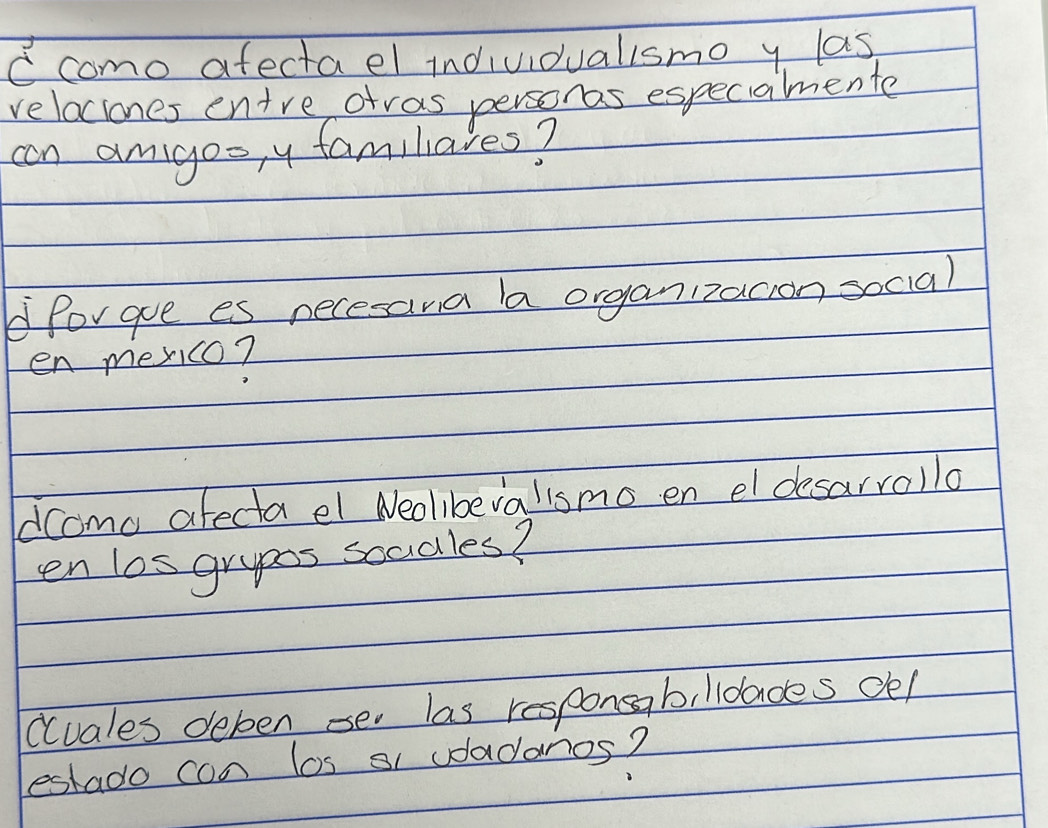 ¿como afecta el individualismo y las
relaciones entre otras personas especialmente
con amigos, y familiares?
¿Por que es necesaria la organizacion social
en mexico?
¿como afecta el Neoliberalismo en el desarrollo
en los grupos sociales?
¿cuales deben ser las responsabilidades del
estado con los si udadanos?